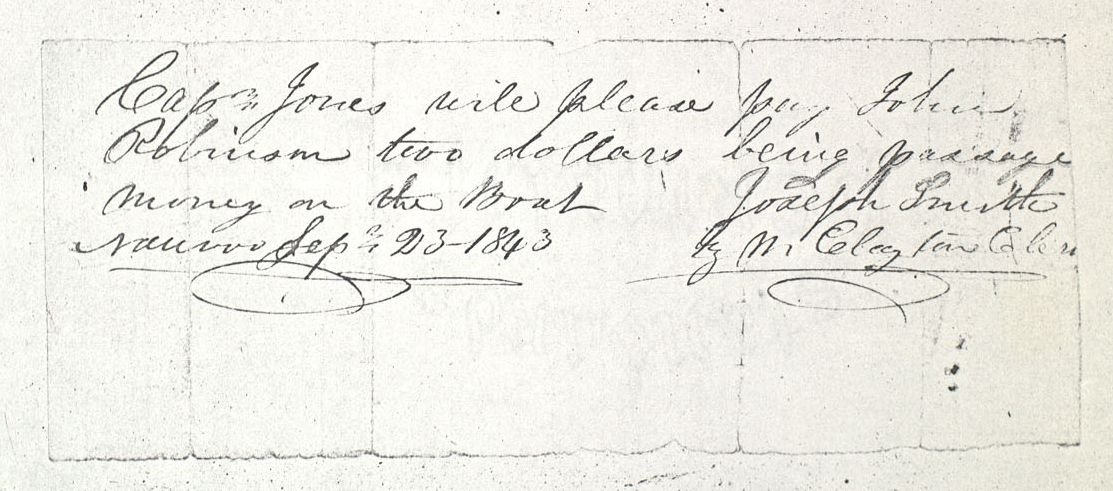 Capn Jones will please pay John
Robinson two dollars being passage
money on the Boat Joseph Smith
Nauvoo Sepr 23-1843 by W Clayton Clerk